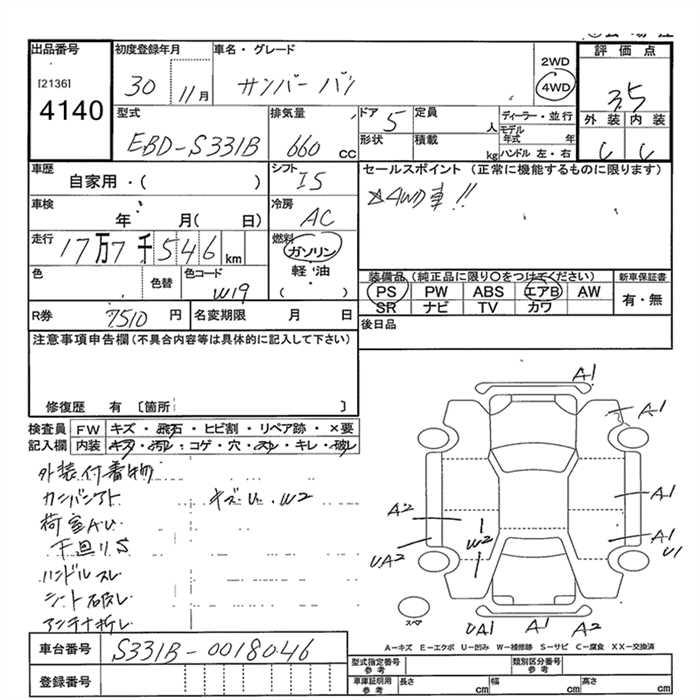 出品番号 初度登録年月 車名・グレード 2WD 評価点
[2136] 30 11月 サンバーバン 4WD 3.5
4140 型式 排気量 ドア 5 定員 人 ディーラー・並行 外装 内装
EBD-S331B 660 cc 形状 積載 kg モデル年式 年 ハンドル 左・右 C C
車歴 シフト I5 セールスポイント (正常に機能するものに限ります)
自家用・( ) ☆4WD車!!
車検 年 月( 日) 冷房 AC
走行 17万7千546km 燃料 ガソリン
軽・油
( ・ )
色 色替 色コード W19
装備品 (純正品に限り○をつけてください) 新車保証書
PS PW ABS エアB AW 有・無
SR ナビ TV カワ
R券 7510円 名変期限 月 日 後日品
注意事項申告欄(不具合内容等は具体的に記入して下さい)
修復歴 有 [箇所 ]
検査員 FW キズ・飛石・ヒビ割・リペア跡・×要
記入欄 内装 キズ・汚レ・コゲ・穴・スレ・キレ・破レ
外装付着物
キズU・W2
荷室AU
下廻りS
ハンドルスレ
シート破レ
アンテナ折レ
A1
A1
A1
A2
A1
U1
W2
UA2
スペア
UA1 A1 A2
A-キズ E-エクボ U-凹み W-補修跡 S-サビ C-腐食 XX-交換済
車台番号 S331B-0018046
登録番号
型式指定番号 参考 類別区分番号 参考
車庫証明用 参考 長さ cm 幅 cm 高さ cm